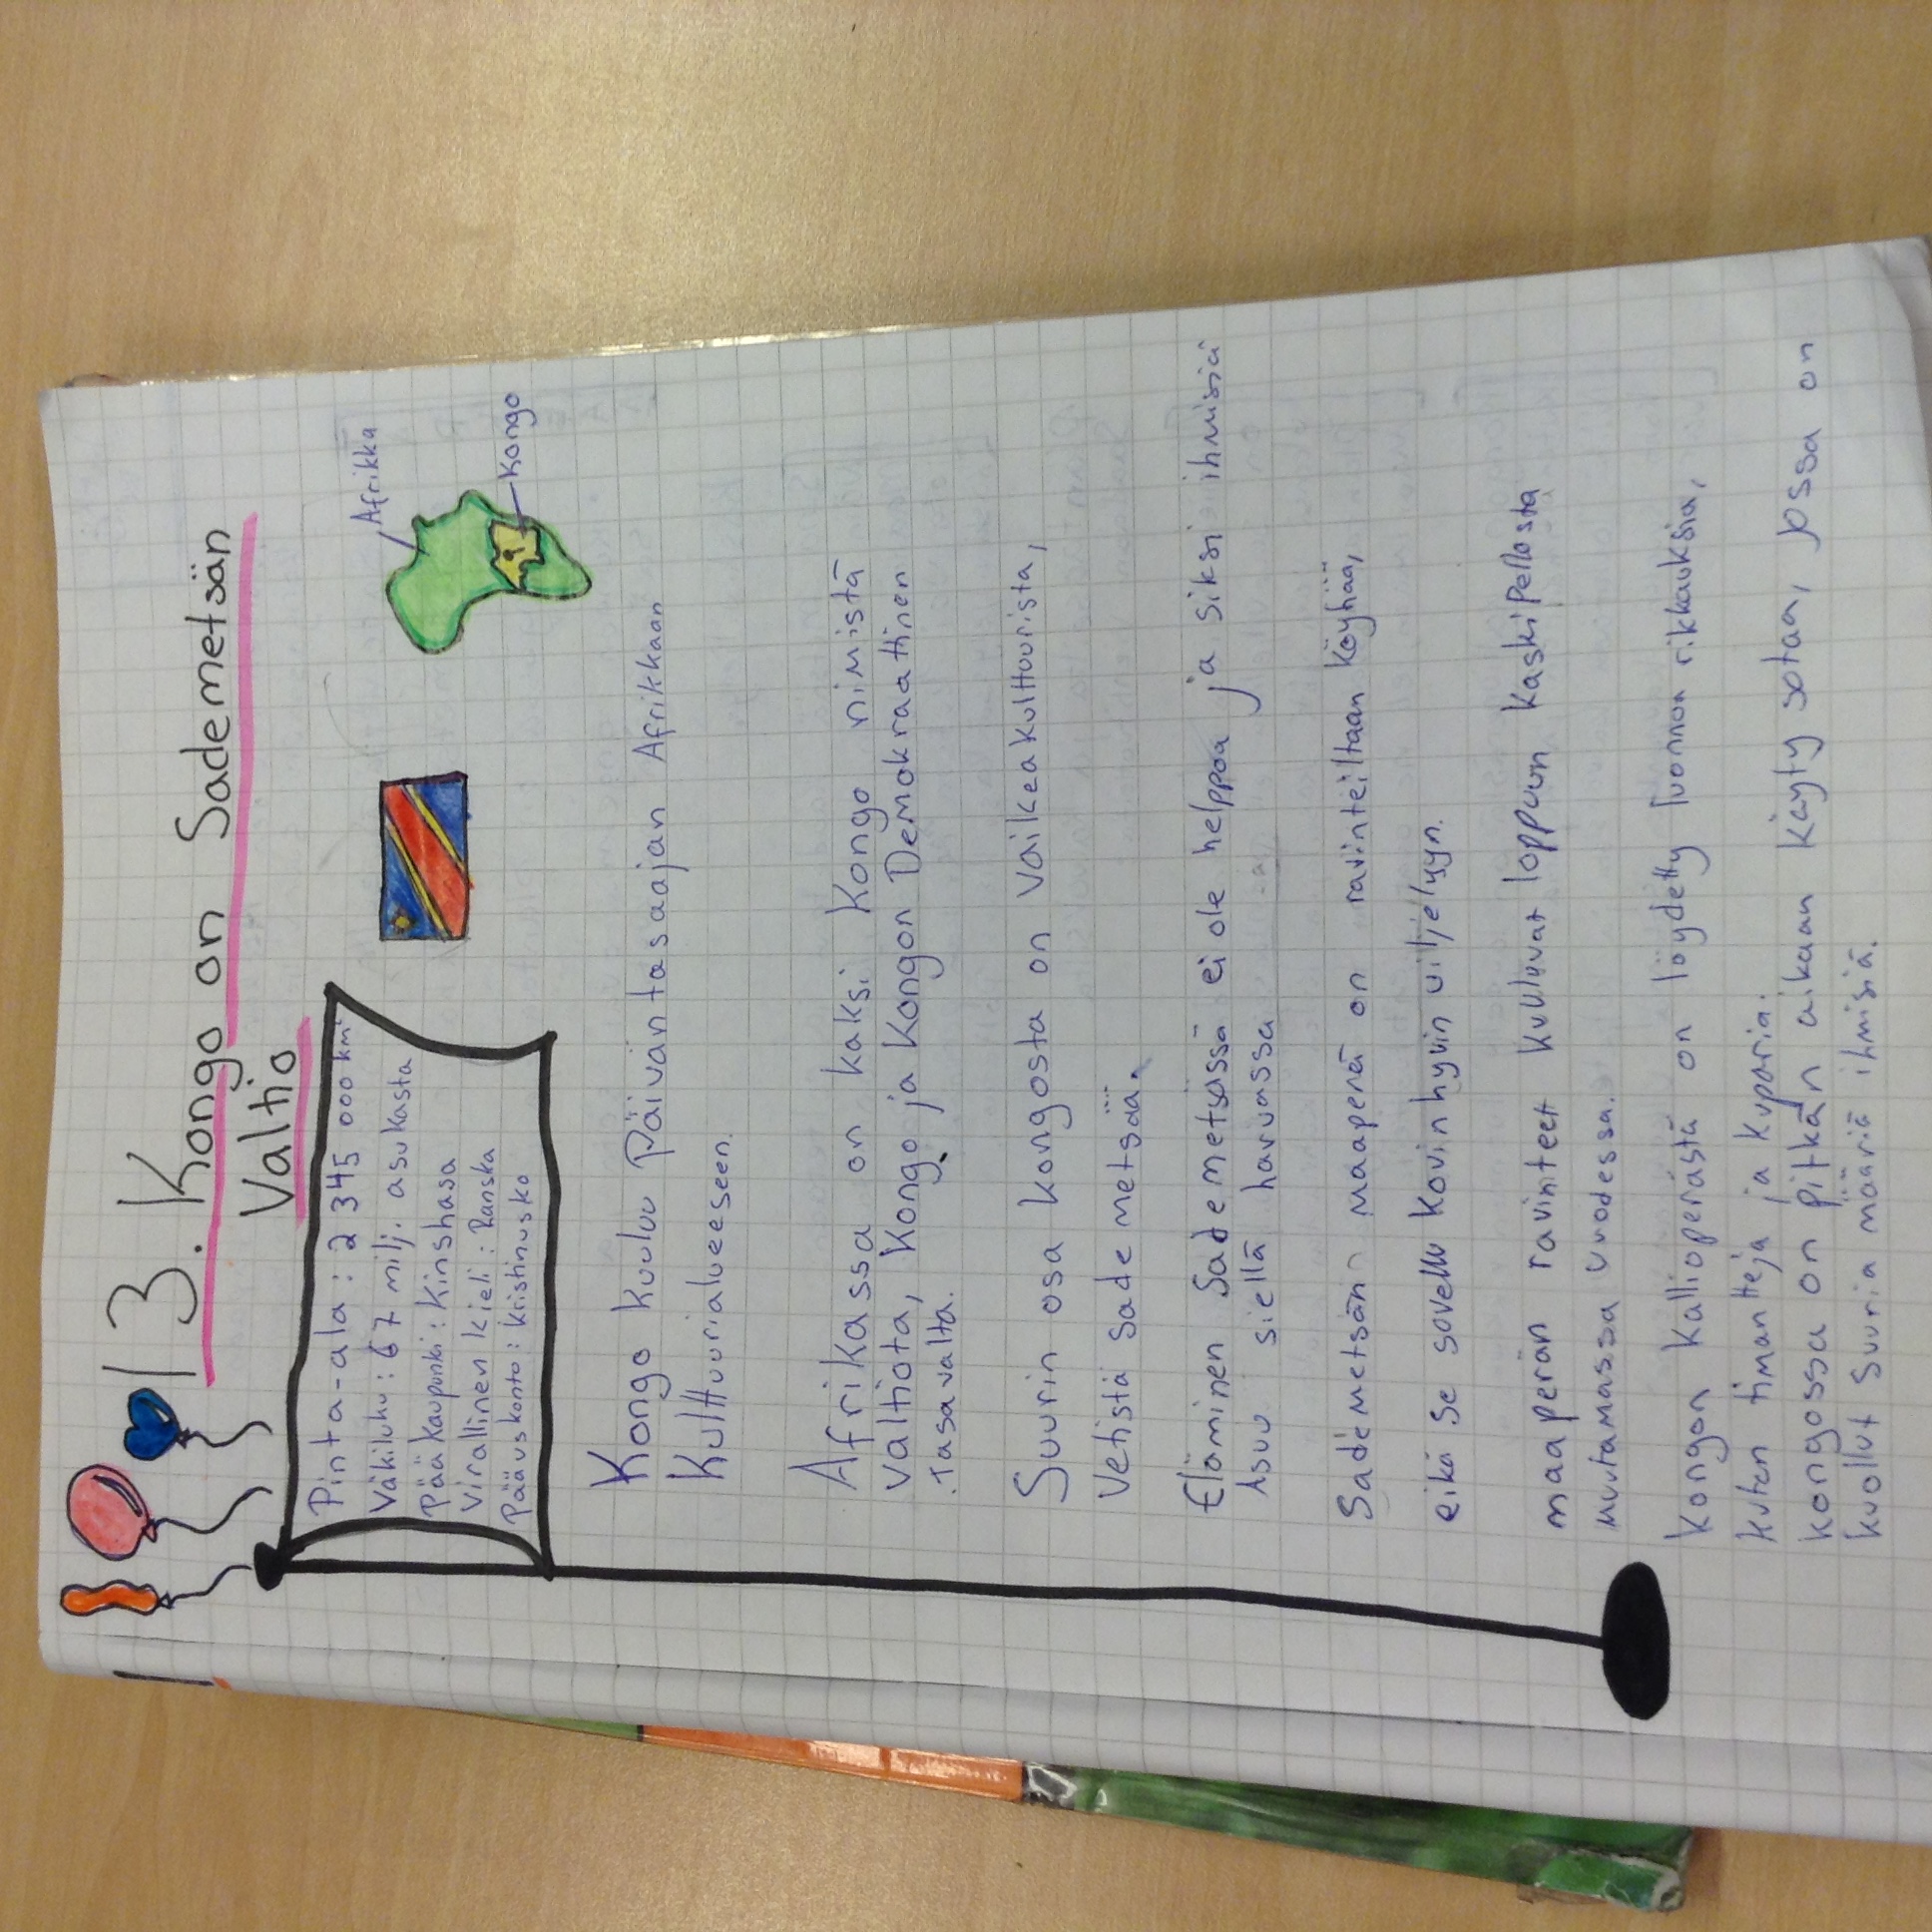 13. Kongo on Sademetsän
Valtio
Pinta-ala : 2 345 000 km²
Väkiluku : 67 milj. asukasta
Pääkaupunki : Kinshasa
Virallinen kieli : Ranska
Pääuskonto : kristinusko
Afrikka
Kongo
Kongo kuuluu Päiväntasaajan Afrikkaan
Kulttuurialueeseen.
Afrikassa on kaksi Kongo nimistä
valtiota, Kongo ja Kongon Demokraattinen
Tasavalta.
Suurin osa kongosta on vaikeakulttuurista,
Vetistä sademetsää.
Eläminen Sademetsässä ei ole helppoa ja siksi ihmisiä
Asuu siellä harvassa
Sademetsän maaperä on ravinteiltaan köyhää,
eikä se sovellu kovin hyvin viljelyyn.
maaperän ravinteet kuluvat loppuun kaskipellosta
muutamassa vuodessa.
Kongon Kallioperästä on löydetty luonnon rikkauksia,
kuten timantteja ja kuparia.
kongossa on pitkän aikaan käyty sotaa, jossa on
kuollut suuria määriä ihmisiä.